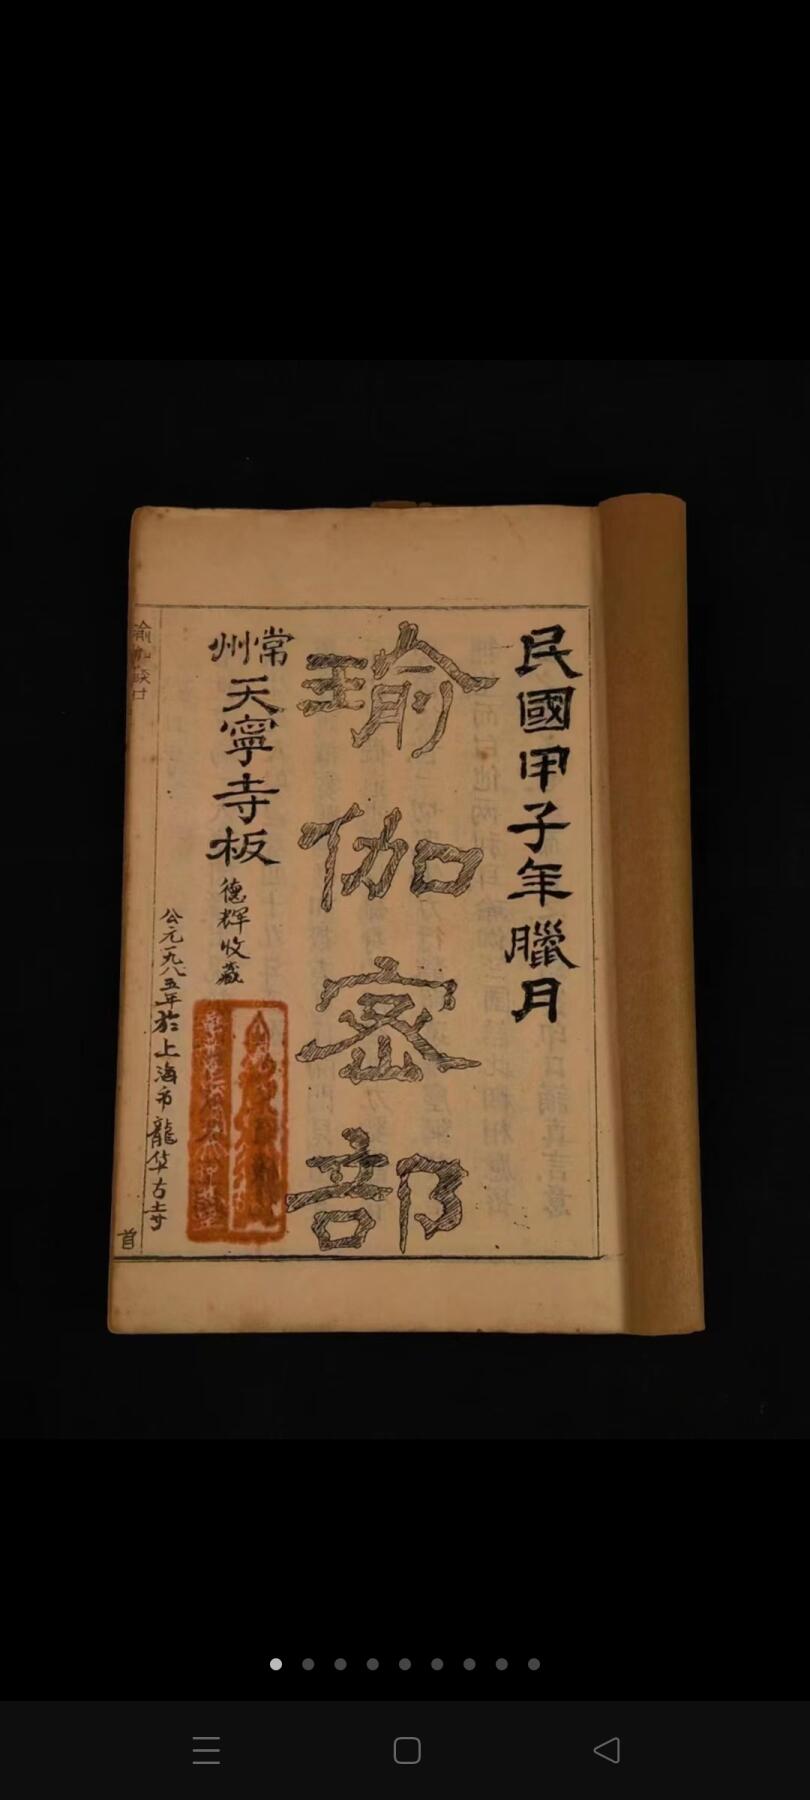 民國甲子年臘月
瑜伽密部
常州
天寧寺板
德輝收藏
公元一九八五年於上海市龍华古寺
首